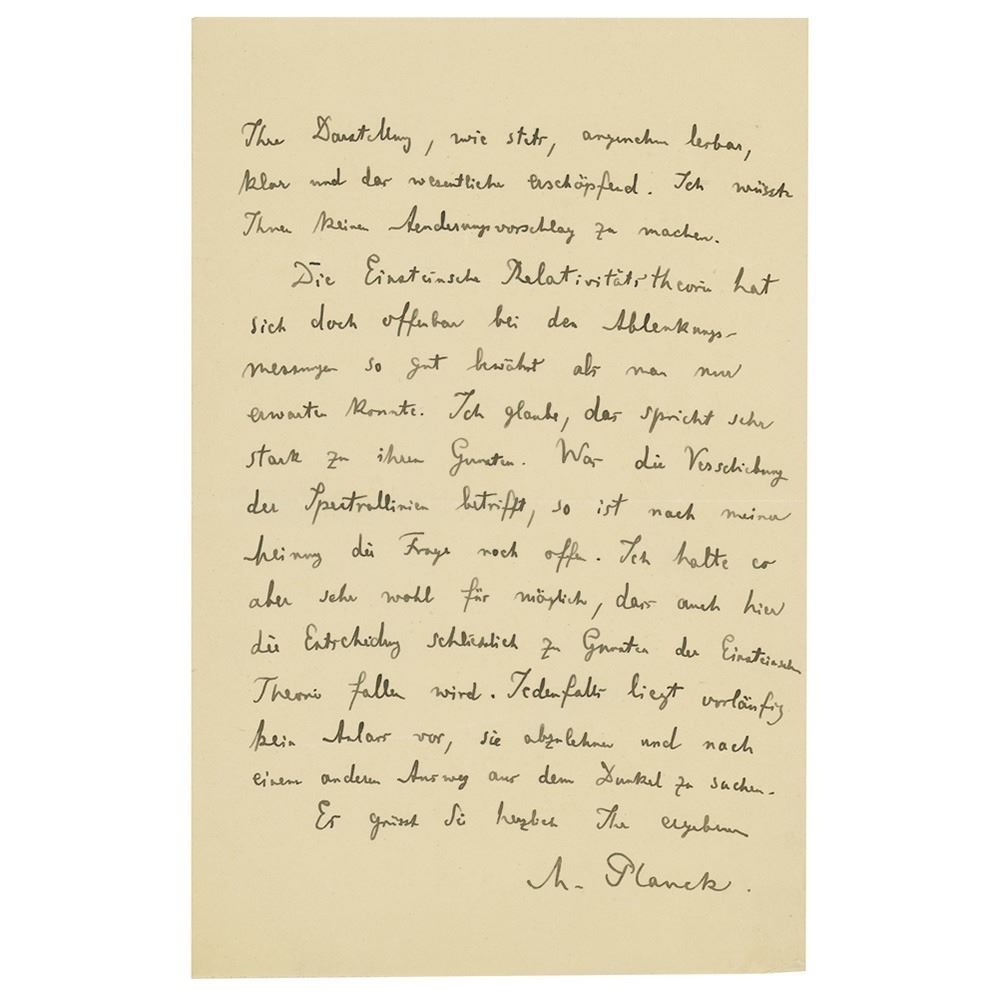 Ihre Darstellung, wie stets, angenehm lesbar,
klar und das wesentliche erschöpfend. Ich wüsste
Ihnen keinen Aenderungsvorschlag zu machen.
Die Einsteinsche Relativitätstheorie hat
sich doch offenbar bei den Ablenkungs-
messungen so gut bewährt als man nur
erwarten konnte. Ich glaube, das spricht sehr
stark zu ihren Gunsten. Was die Verschiebung
der Spectrallinien betrifft, so ist nach meiner
Meinung die Frage noch offen. Ich halte es
aber sehr wohl für möglich, dass auch hier
die Entscheidung schliesslich zu Gunsten der Einsteinschen
Theorie fallen wird. Jedenfalls liegt vorläufig
kein Anlass vor, sie abzulehnen und nach
einem anderen Ausweg aus dem Dunkel zu suchen.
Es grüsst Sie herzlich Ihr ergebener
M. Planck.